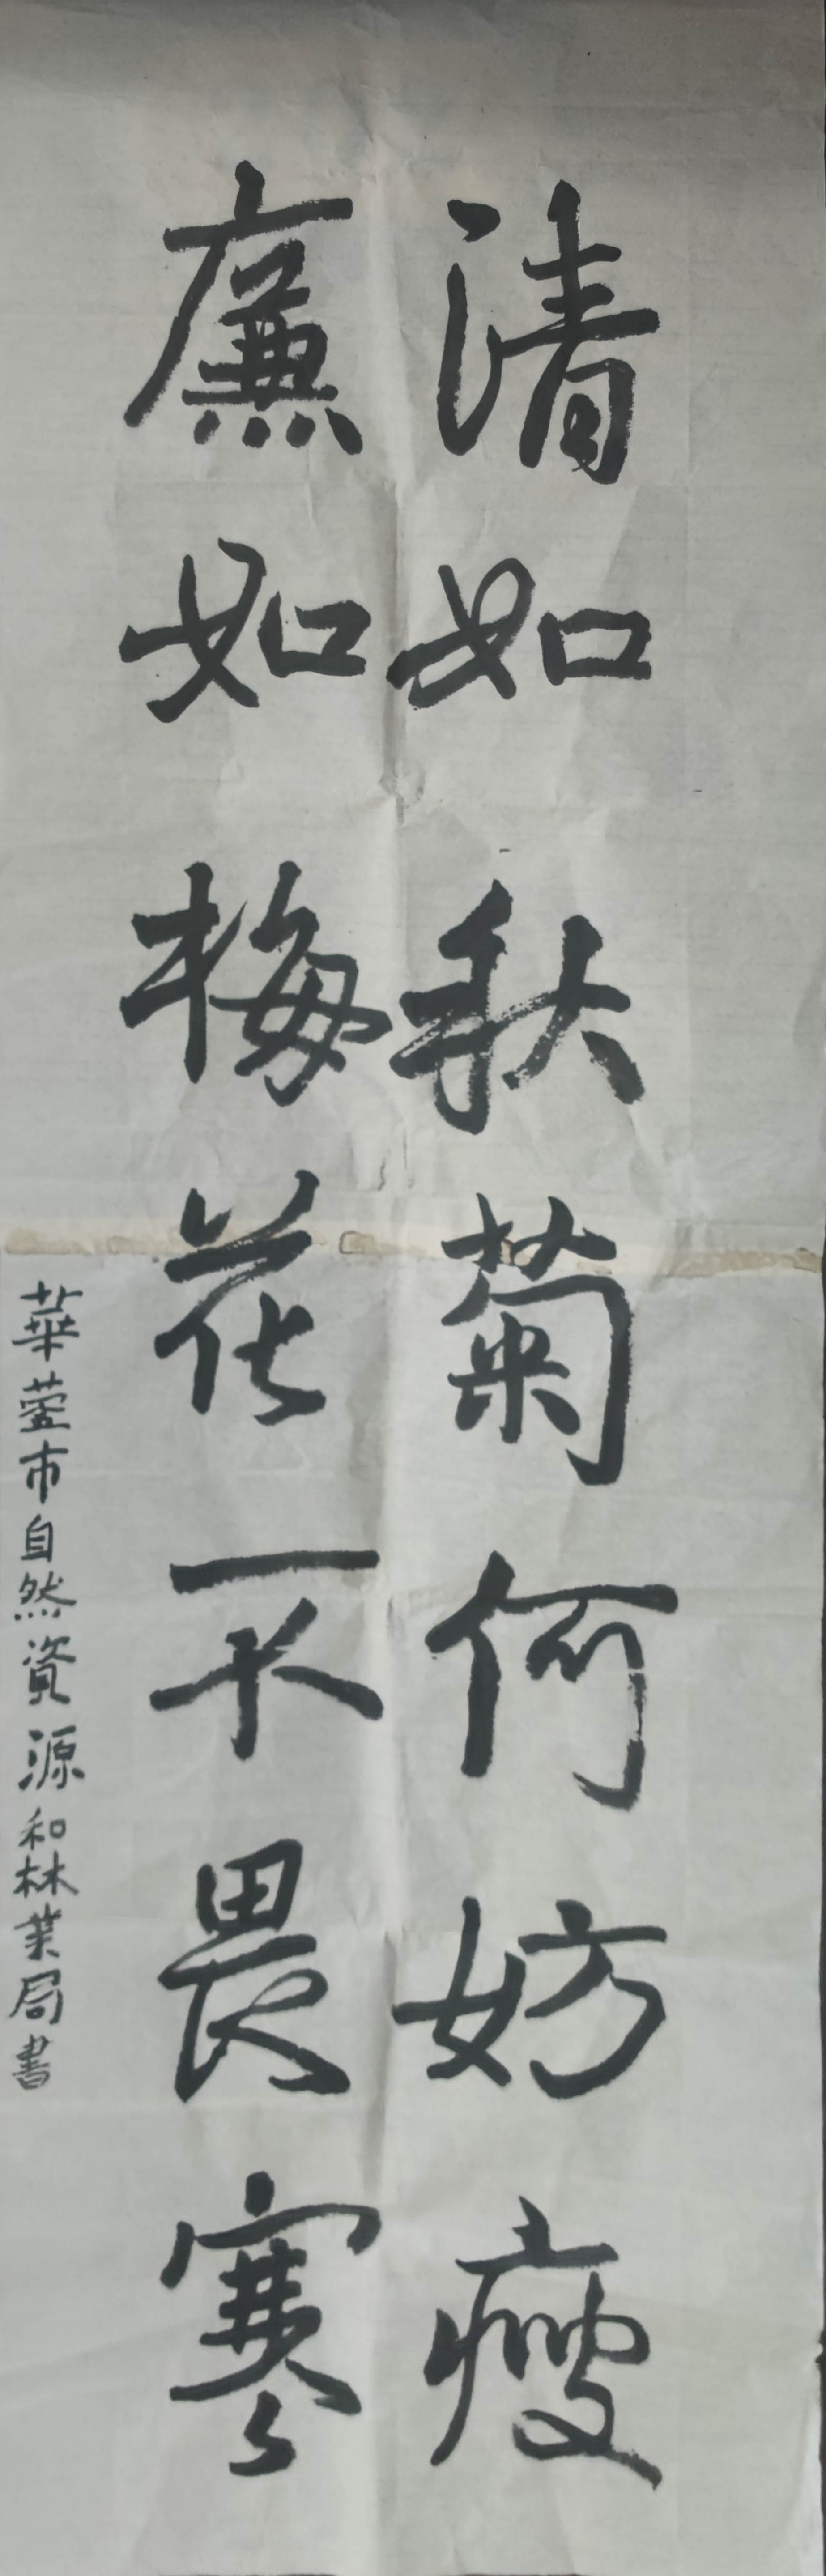 清如秋菊何妨瘦
廉如梅花不畏寒
華蓥市自然資源和林業局書